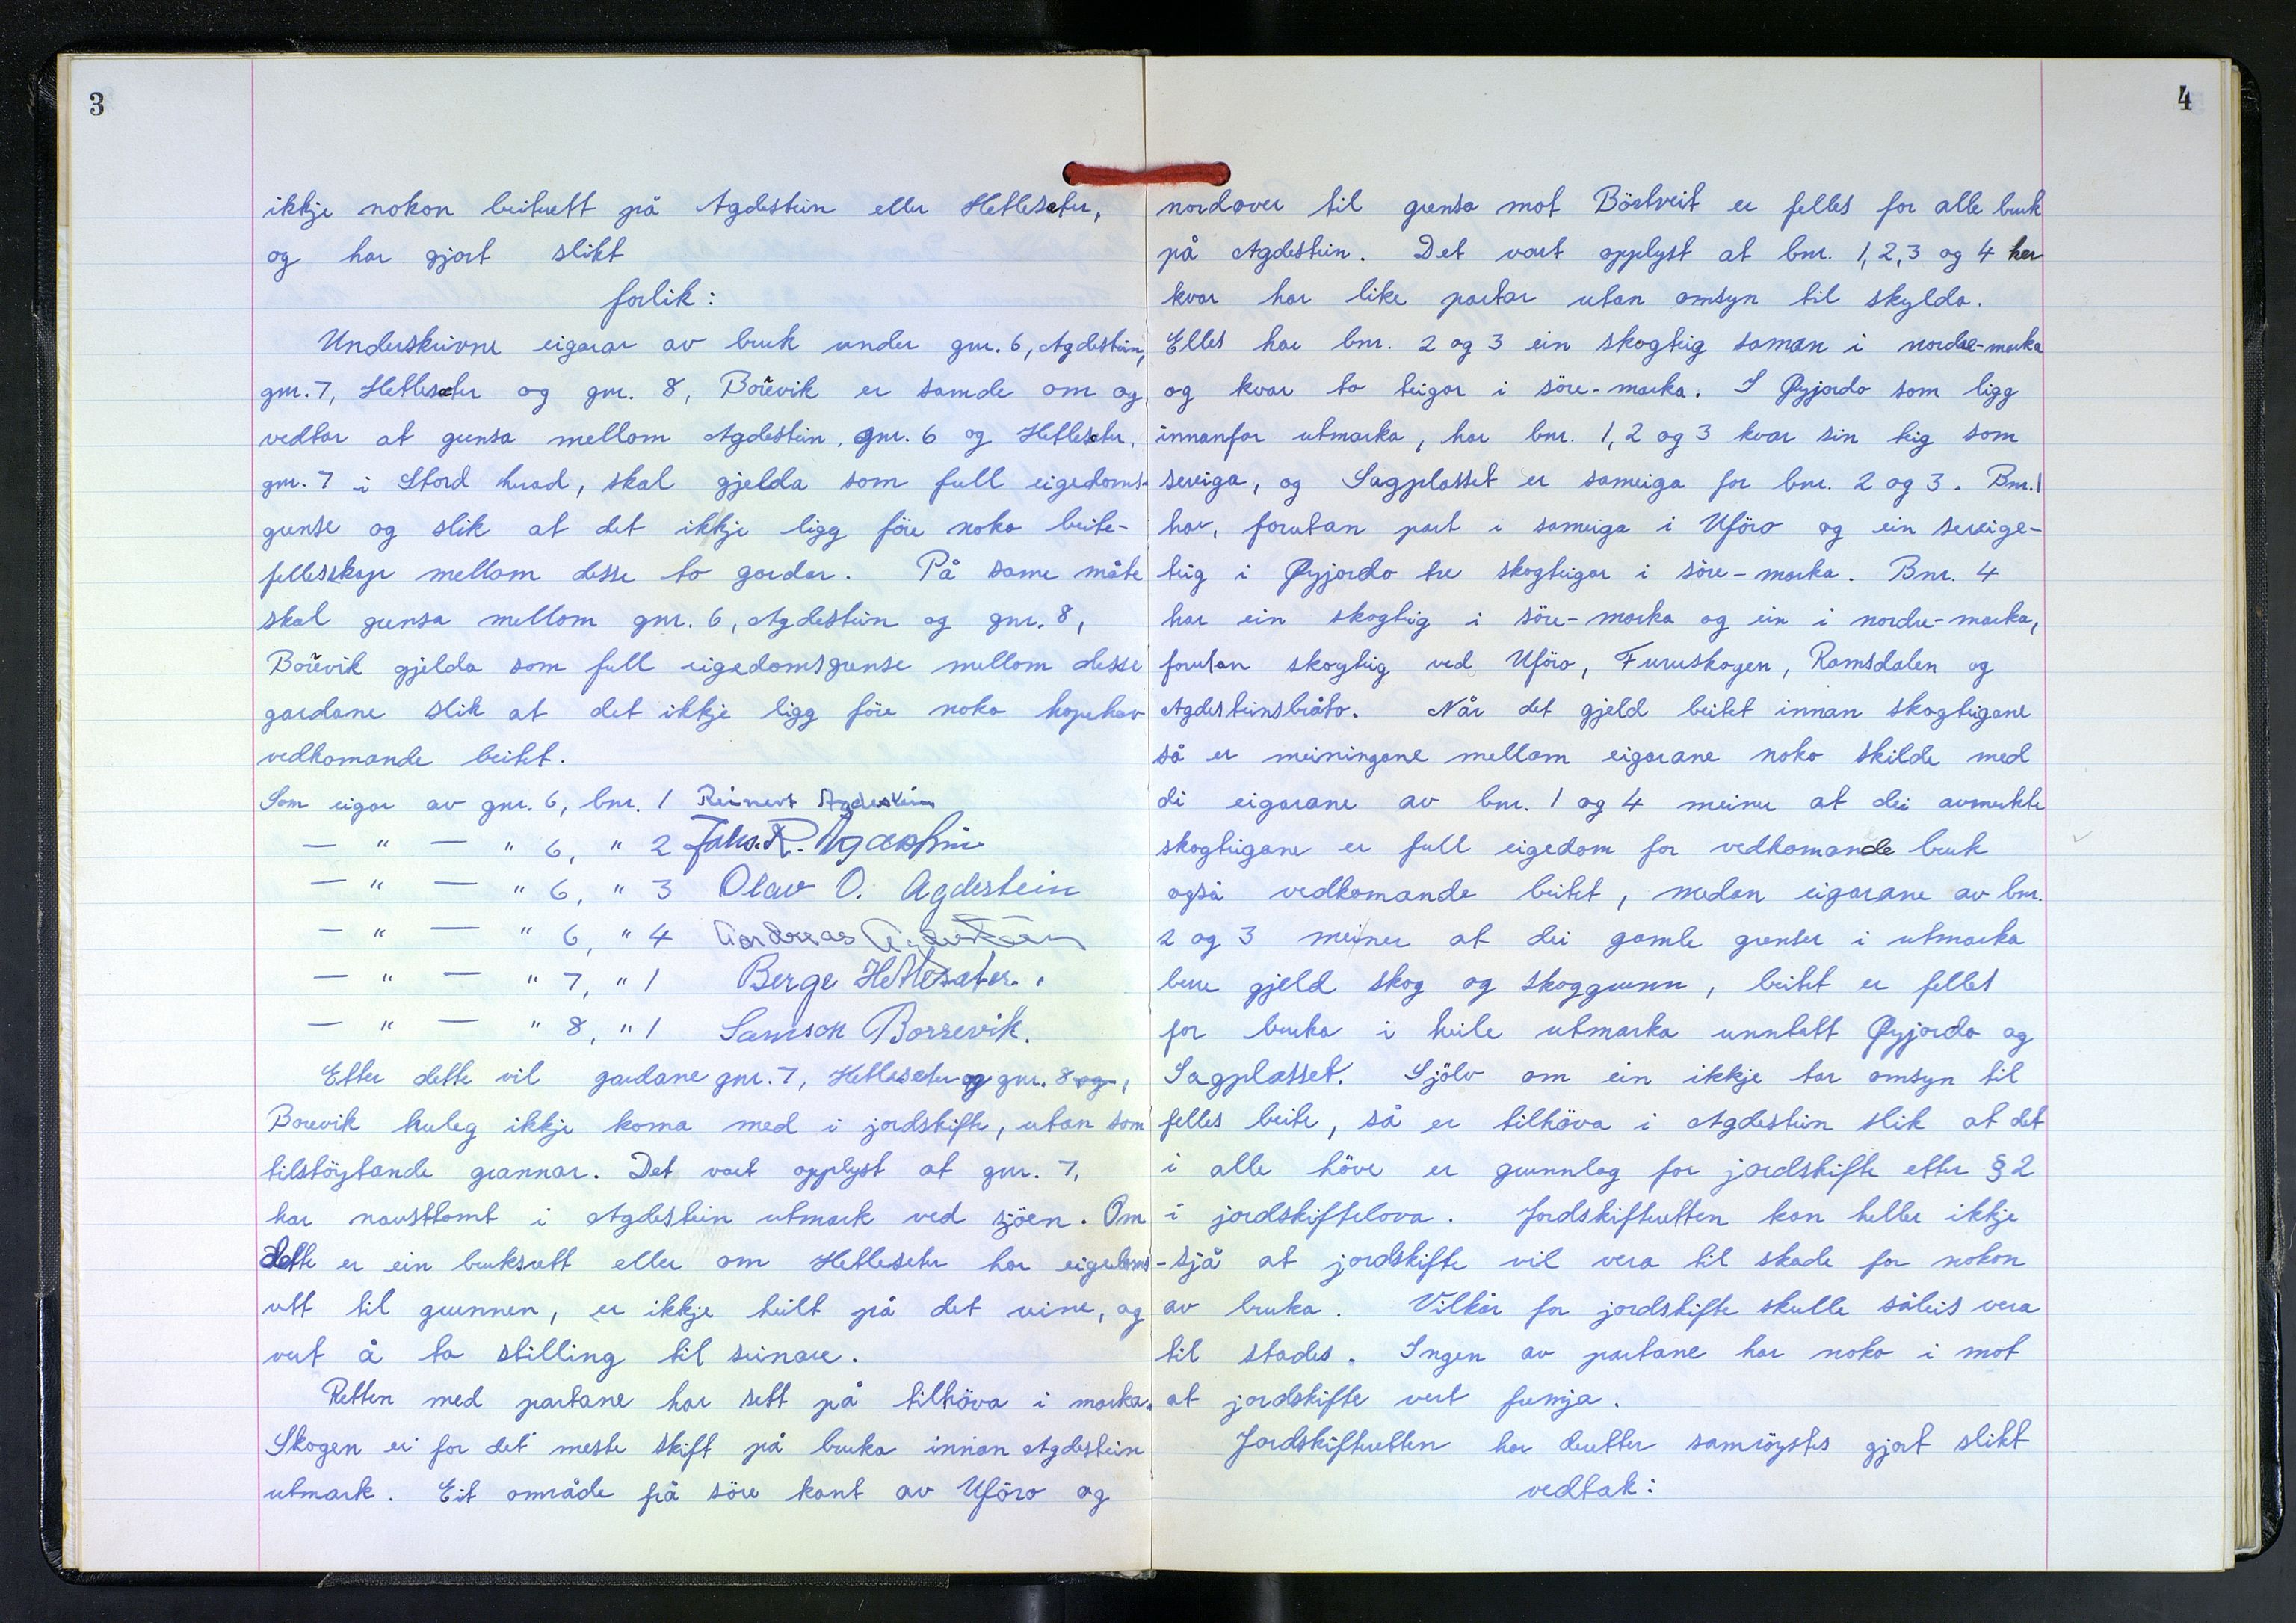 3
ikkje nokon beiterett på Agdestein eller Hetlesæter,
og har gjort slikt
forlik:
Underskrivne eigarar av bruk under gnr. 6, Agdestein,
gnr. 7, Hetlesæter og gnr. 8, Borevik er samde om og
vedtar at grensa mellom Agdestein, gnr. 6 og Hetlesæter,
gnr. 7 i Stord herad, skal gjelda som full eigedoms-
grense og slik at det ikkje ligg före noko beite-
fellesskap mellom desse to gardar. På same måte
skal grensa mellom gnr. 6, Agdestein og gnr. 8,
Borevik gjelda som full eigedomsgrense mellom desse
gardane slik at det ikkje ligg före noko hopehav
vedkomande beitet.
Som eigar av gnr. 6, bnr. 1 Reinert Agdestein
— " — " 6, " 2 R. Agdestein
— " — " 6, " 3 Olav O. Agdestein
— " — " 6, " 4 Andreas Agdestein
— " — " 7, " 1 Berge Hetlesæter.
— " — " 8, " 1 Samson Borrevik.
Etter dette vil gardane gnr. 7, Hetlesæter og gnr. 8 og,
Borevik truleg ikkje koma med i jordskifte, utan som
tilstöytande grannar. Det vart opplyst at gnr. 7,
har nausttomt i Agdestein utmark ved sjöen. Om
dette er ein bruksrett eller om Hetleseter har eigedoms-
rett til grunnen, er ikkje heilt på det reine, og
vert å ta stilling til seinare.
Retten med partane har sett på tilhöva i marka.
Skogen er for det meste skift på bruka innan Agdestein
utmark. Eit område frå söre kant av Uföro og
4
nordover til grensa mot Börtveit er felles for alle bruk
på Agdestein. Det vart opplyst at bnr. 1, 2, 3 og 4 her
kvar har like partar utan omsyn til skylda.
Elles har bnr. 2 og 3 ein skogteig saman i nordre-marka
og kvar to teigar i söre-marka. I Øyjordo som ligg
innanfor utmarka, har bnr. 1, 2 og 3 kvar sin teig som
sereiga, og Sagplasset er sameiga for bnr. 2 og 3. Bnr. 1
har, forutan part i sameiga i Uföro og ein sereige-
teig i Øyjordo tre skogteigar i söre-marka. Bnr. 4
har ein skogteig i söre-marka og ein i nordre-marka,
forutan skogteig ved Uföro, Furuskogen, Ramsdalen og
Agdesteinsbråto. Når det gjeld beitet innan skogteigane
så er meiningane mellom eigarane noko skilde med
di eigarane av bnr. 1 og 4 meiner at dei avmerkte
skogteigane er full eigedom for vedkomande bruk
også vedkomande beitet, medan eigarane av bnr.
2 og 3 meiner at dei gamle grenser i utmarka
berre gjeld skog og skoggrunn, beitet er felles
for bruka i heile utmarka unntatt Øyjordo og
Sagplasset. Sjölv om ein ikkje tar omsyn til
felles beite, så er tilhöva i Agdestein slik at det
i alle höve er grunnlag for jordskifte etter § 2
i jordskiftelova. Jordskifteretten kan heller ikkje
-sjå at jordskifte vil vera til skade for nokon
av bruka. Vilkår for jordskifte skulle såleis vera
til stades. Ingen av partane har noko i mot
at jordskifte vert fremja.
Jordskifteretten har deretter samröystes gjort slikt
vedtak: